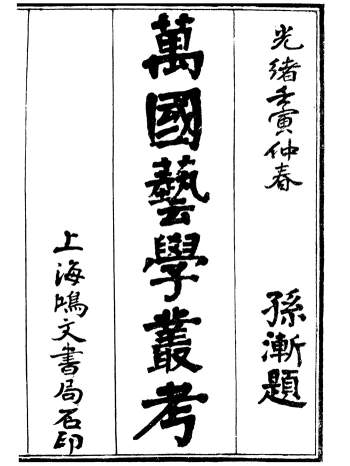 光緒壬寅仲春
孫漸題
萬國藝學叢考
上海鴻文書局石印